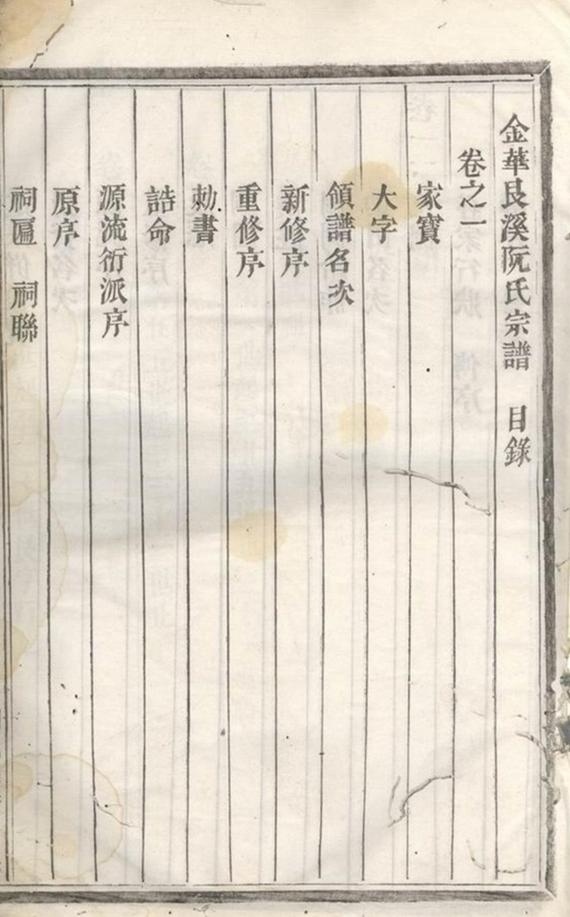 金華艮溪阮氏宗譜 目錄
卷之一
家寶
大字
領譜名次
新修序
重修序
勅書
誥命
源流衍派序
原序
祠匾 祠聯